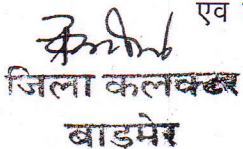 एव
जिला कलक्टर
बाडमेर